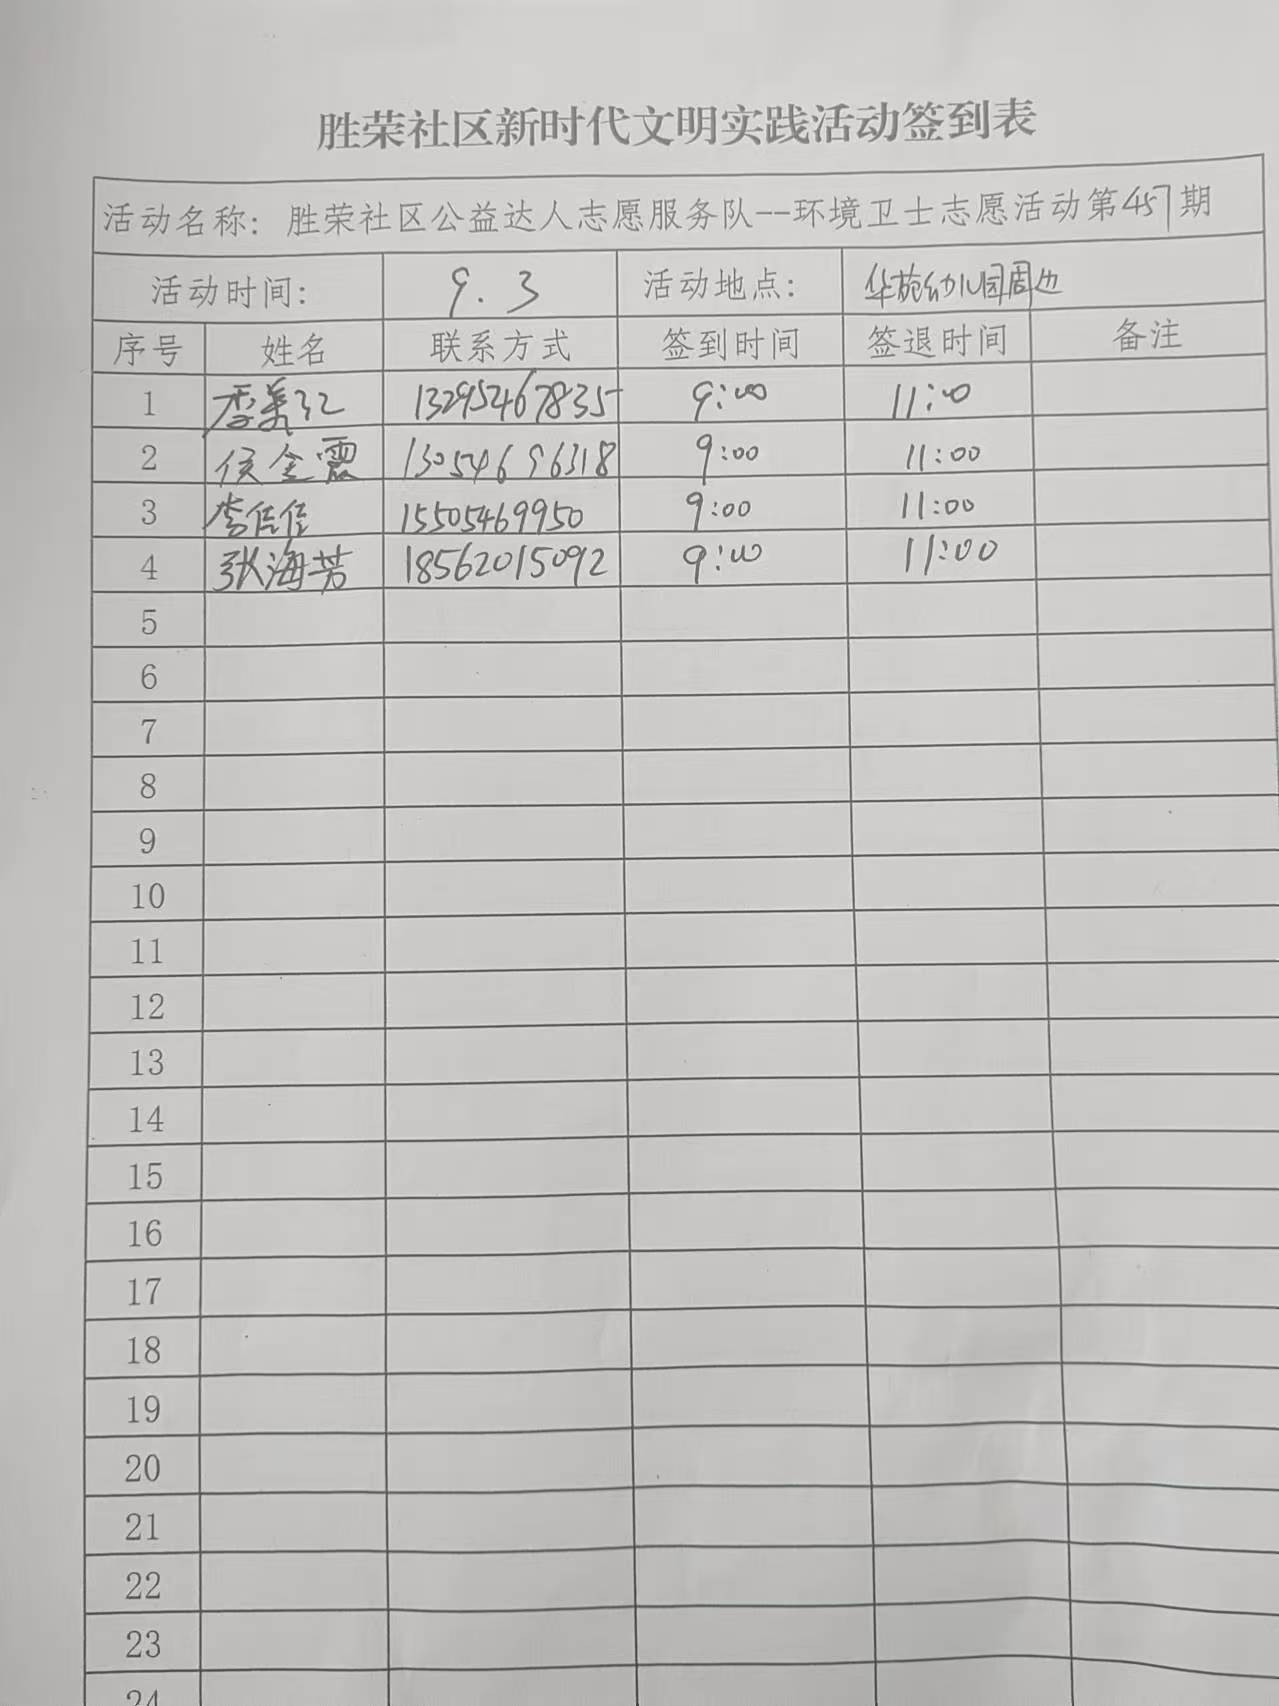 胜荣社区新时代文明实践活动签到表
活动名称：胜荣社区公益达人志愿服务队--环境卫士志愿活动第457期
活动时间： 9.3 活动地点： 华苑幼儿园周边
序号 姓名 联系方式 签到时间 签退时间 备注
1 季美红 13295467835 9:00 11:00
2 侯金震 13054696318 9:00 11:00
3 李佳佳 15505469950 9:00 11:00
4 张海芳 18562015092 9:00 11:00
5
6
7
8
9
10
11
12
13
14
15
16
17
18
19
20
21
22
23
24